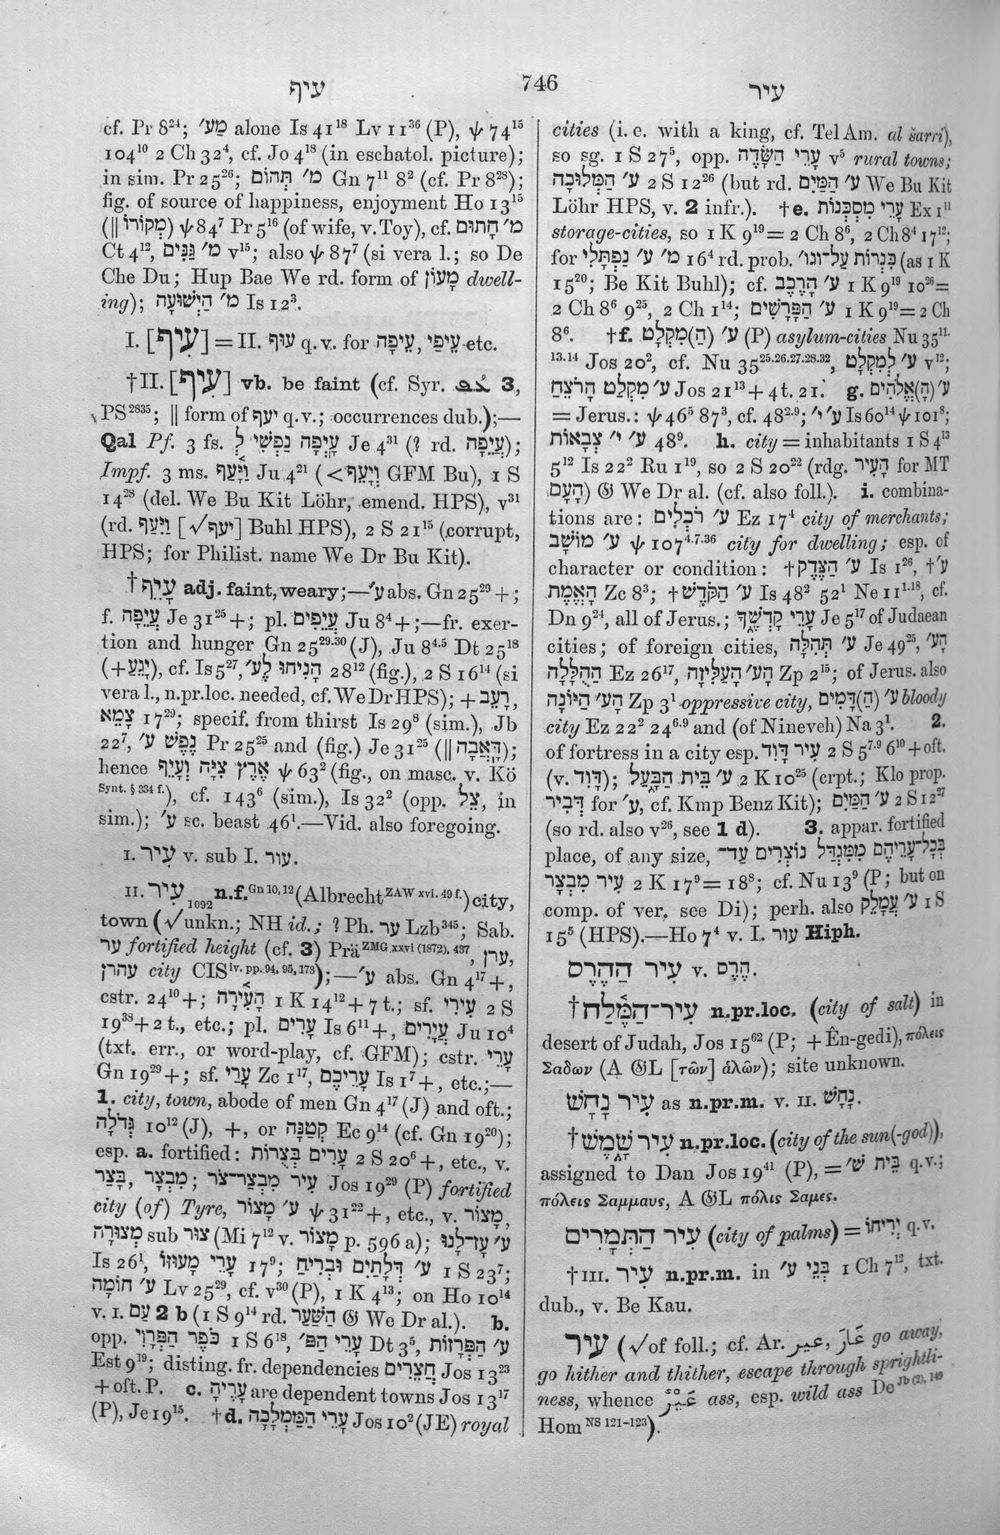 עיף
746
עיר
cf. Pr 8²⁴; מַע׳ alone Is 41¹⁸ Lv 11³⁶ (P), ψ 74¹⁵
104¹⁰ 2 Ch 32⁴, cf. Jo 4¹⁸ (in eschatol. picture);
in sim. Pr 25²⁶; מ׳ תְּהוֹם Gn 7¹¹ 8² (cf. Pr 8²⁸);
fig. of source of happiness, enjoyment Ho 13¹⁵
(‖ מְקוֹרוֹ) ψ 84⁷ Pr 5¹⁶ (of wife, v. Toy), cf. מ׳ חָתוּם
Ct 4¹², מ׳ גַּנִּים v¹⁵; also ψ 87⁷ (si vera l.; so De
Che Du; Hup Bae We rd. form of מָעוֹן dwell-
ing); מ׳ הַיְשׁוּעָה Is 12³.
I. [עִיף] = II. עוף q.v. for עֵיפָה, עֵיפַי etc.
†II. [עִיף] vb. be faint (cf. Syr. 3,
PS²⁸³⁵; ‖ form of יעף q.v.; occurrences dub.);—
Qal Pf. 3 fs. עָֽיְפָה נַפְשִׁי לְ Je 4³¹ (? rd. עֲיֵפָה);
Impf. 3 ms. וַיָּ֫עַף Ju 4²¹ (< וַיָּעֵף GFM Bu), 1 S
14²⁸ (del. We Bu Kit Löhr, emend. HPS), v³¹
(rd. וַיִּעַף [√יעף] Buhl HPS), 2 S 21¹⁵ (corrupt,
HPS; for Philist. name We Dr Bu Kit).
†עָיֵף adj. faint, weary;—ע׳ abs. Gn 25²⁹ +;
f. עֲיֵפָה Je 31²⁵ +; pl. עֲיֵפִים Ju 8⁴ +;—fr. exer-
tion and hunger Gn 25²⁹·³⁰ (J), Ju 8⁴·⁵ Dt 25¹⁸
(+ יָגֵעַ), cf. Is 5²⁷, הָנִיחוּ לֶע׳ 28¹² (fig.), 2 S 16¹⁴ (si
vera l., n.pr.loc. needed, cf. We Dr HPS); + רָעֵב,
צָמֵא 17²⁹; specif. from thirst Is 29⁸ (sim.), Jb
22⁷, נֶפֶשׁ ע׳ Pr 25²⁵ and (fig.) Je 31²⁵ (‖ דָּאֲבָה);
hence אֶרֶץ צִיָּה וְעָיֵף ψ 63² (fig., on masc. v. Kö
Synt. § 334 f.), cf. 143⁶ (sim.), Is 32² (opp. צֵל, in
sim.); ע׳ sc. beast 46¹.—Vid. also foregoing.
I. עִיר v. sub I. עור.
II. עִיר₁₀₉₂ n.f. Gn 10,12 (Albrecht ZAW xvi. 49 f.) city,
town (√unkn.; NH id.; ? Ph. ער Lzb³⁴⁵; Sab.
ער fortified height (cf. 3) Prä ZMG xxvi (1872), 437, ערן,
עהרן city CIS iv. pp. 94, 95, 173);—ע׳ abs. Gn 4¹⁷ +,
cstr. 24¹⁰ +; הָעִ֫ירָה 1 K 14¹² + 7 t.; sf. עִירִי 2 S
19³⁸ + 2 t., etc.; pl. עָרִים Is 6¹¹ +, עֲיָרִים Ju 10⁴
(txt. err., or word-play, cf. GFM); cstr. עָרֵי
Gn 19²⁹ +; sf. עָרַי Zc 1¹⁷, עָרֵיכֶם Is 1⁷ +, etc.;—
1. city, town, abode of men Gn 4¹⁷ (J) and oft.;
גְּדֹלָה 10¹² (J), +, or קְטַנָּה Ec 9¹⁴ (cf. Gn 19²⁰);
esp. a. fortified: עָרִים בְּצֻרוֹת 2 S 20⁶ +, etc., v.
בָּצַר, מִבְצָר; עִיר מִבְצַר־צֹר Jos 19²⁹ (P) fortified
city (of) Tyre, ע׳ מָצוֹר ψ 31²² +, etc., v. מָצוֹר,
מְצוּרָה sub צור (Mi 7¹² v. מָצוֹר p. 596 a); ע׳ עָז־לָנוּ
Is 26¹, עָרֵי מָעוּזּוֹ 17⁹; ע׳ דְּלָתַיִם וּבְרִיחַ 1 S 23⁷;
ע׳ חוֹמָה Lv 25²⁹, cf. v³⁰ (P), 1 K 4¹³; on Ho 10¹⁴
v. I. עַם 2 b (1 S 9¹⁴ rd. הַשַּׁעַר 𝔊 We Dr al.). b.
opp. כֹּפֶר הַפְּרָזִי 1 S 6¹⁸, עָרֵי הַפּ׳ Dt 3⁵, ע׳ הַפְּרָזוֹת
Est 9¹⁹; disting. fr. dependencies חֲצֵרִים Jos 13²³
+ oft. P. c. עָרֶיהָ are dependent towns Jos 13¹⁷
(P), Je 19¹⁵. †d. עָרֵי הַמַּמְלָכָה Jos 10² (JE) royal
cities (i. e. with a king, cf. Tel Am. al šarri),
so sg. 1 S 27⁵, opp. עָרֵי הַשָּׂדֶה v⁵ rural towns;
ע׳ הַמְּלוּכָה 2 S 12²⁶ (but rd. ע׳ הַמַּיִם We Bu Kit
Löhr HPS, v. 2 infr.). †e. עָרֵי מִסְכְּנוֹת Ex 1¹¹
storage-cities, so 1 K 9¹⁹ = 2 Ch 8⁶, 2 Ch 8⁴ 17¹²;
for מ׳ ע׳ נַפְתָּלִי 16⁴ rd. prob. כִּנְרוֹת עַל־וגו׳ (as 1 K
15²⁰; Be Kit Buhl); cf. ע׳ הָרֶכֶב 1 K 9¹⁹ 10²⁶ =
2 Ch 8⁶ 9²⁵, 2 Ch 1¹⁴; ע׳ הַפָּרָשִׁים 1 K 9¹⁹ = 2 Ch
8⁶. †f. ע׳ (הַ)מִקְלָט (P) asylum-cities Nu 35¹¹·
¹³·¹⁴ Jos 20², cf. Nu 35²⁵·²⁶·²⁷·²⁸·³², ע׳ לְמִקְלָט v¹²;
ע׳ מִקְלַט הָרֹצֵחַ Jos 21¹³ + 4 t. 21. g. ע׳ (הָ)אֱלֹהִים
= Jerus.: ψ 46⁵ 87³, cf. 48²·⁹; ע׳ י׳ Is 60¹⁴ ψ 101⁸;
ע׳ י׳ צְבָאוֹת 48⁹. h. city = inhabitants 1 S 4¹³
5¹² Is 22² Ru 1¹⁹, so 2 S 20²² (rdg. הָעִיר for MT
הָעָם) 𝔊 We Dr al. (cf. also foll.). i. combina-
tions are: ע׳ רֹכְלִים Ez 17⁴ city of merchants;
ע׳ מוֹשָׁב ψ 107⁴·⁷·³⁶ city for dwelling; esp. of
character or condition: †ע׳ הַצֶּדֶק Is 1²⁶, †ע׳
הָאֱמֶת Zc 8³; †ע׳ הַקֹּדֶשׁ Is 48² 52¹ Ne 11¹·¹⁸, cf.
Dn 9²⁴, all of Jerus.; עָרֵי קָדְשֶׁךָ Je 5¹⁷ of Judaean
cities; of foreign cities, ע׳ תְּהִלָּה Je 49²⁵, הָע׳
הַהֻלָּלָה Ez 26¹⁷, הָע׳ הָעַלִּיזָה Zp 2¹⁵; of Jerus. also
הָע׳ הַיּוֹנָה Zp 3¹ oppressive city, ע׳ (הַ)דָּמִים bloody
city Ez 22² 24⁶·⁹ and (of Nineveh) Na 3¹. 2.
of fortress in a city esp. עִיר דָּוִד 2 S 5⁷·⁹ 6¹⁰ + oft.
(v. דָּוִד); ע׳ בֵּית הַבַּעַל 2 K 10²⁵ (crpt.; Klo prop.
דְּבִיר for ע׳, cf. Kmp Benz Kit); ע׳ הַמַּיִם 2 S 12²⁷
(so rd. also v²⁶, see 1 d). 3. appar. fortified
place, of any size, בְּכָל־עָרֵיהֶם מִמִּגְדַּל נוֹצְרִים עַד־
עִיר מִבְצָר 2 K 17⁹ = 18⁸; cf. Nu 13⁹ (P; but on
comp. of ver. see Di); perh. also ע׳ עֲמָלֵק 1 S
15⁵ (HPS).—Ho 7⁴ v. I. עור Hiph.
עִיר הַהֶרֶס v. הֶרֶס.
†עִיר־הַמֶּ֫לַח n.pr.loc. (city of salt) in
desert of Judah, Jos 15⁶² (P; + Ên-gedi), πόλεις
Σαδων (A 𝔊L [τῶν] ἁλῶν); site unknown.
עִיר נָחָשׁ as n.pr.m. v. II. נָחָשׁ.
†עִיר שֶׁמֶשׁ n.pr.loc. (city of the sun(-god)),
assigned to Dan Jos 19⁴¹ (P), = בֵּית שׁ׳ q.v.;
πόλεις Σαμμαυς, A 𝔊L πόλις Σαμες.
עִיר הַתְּמָרִים (city of palms) = יְרִיחוֹ q.v.
†III. עִיר n.pr.m. in בְּנֵי ע׳ 1 Ch 7¹², txt.
dub., v. Be Kau.
עיר (√of foll.; cf. Ar. عَارَ, عير go away,
go hither and thither, escape through sprightli-
ness, whence عَيْرٌ ass, esp. wild ass De Jb (2), 149
Hom NS 121–123).